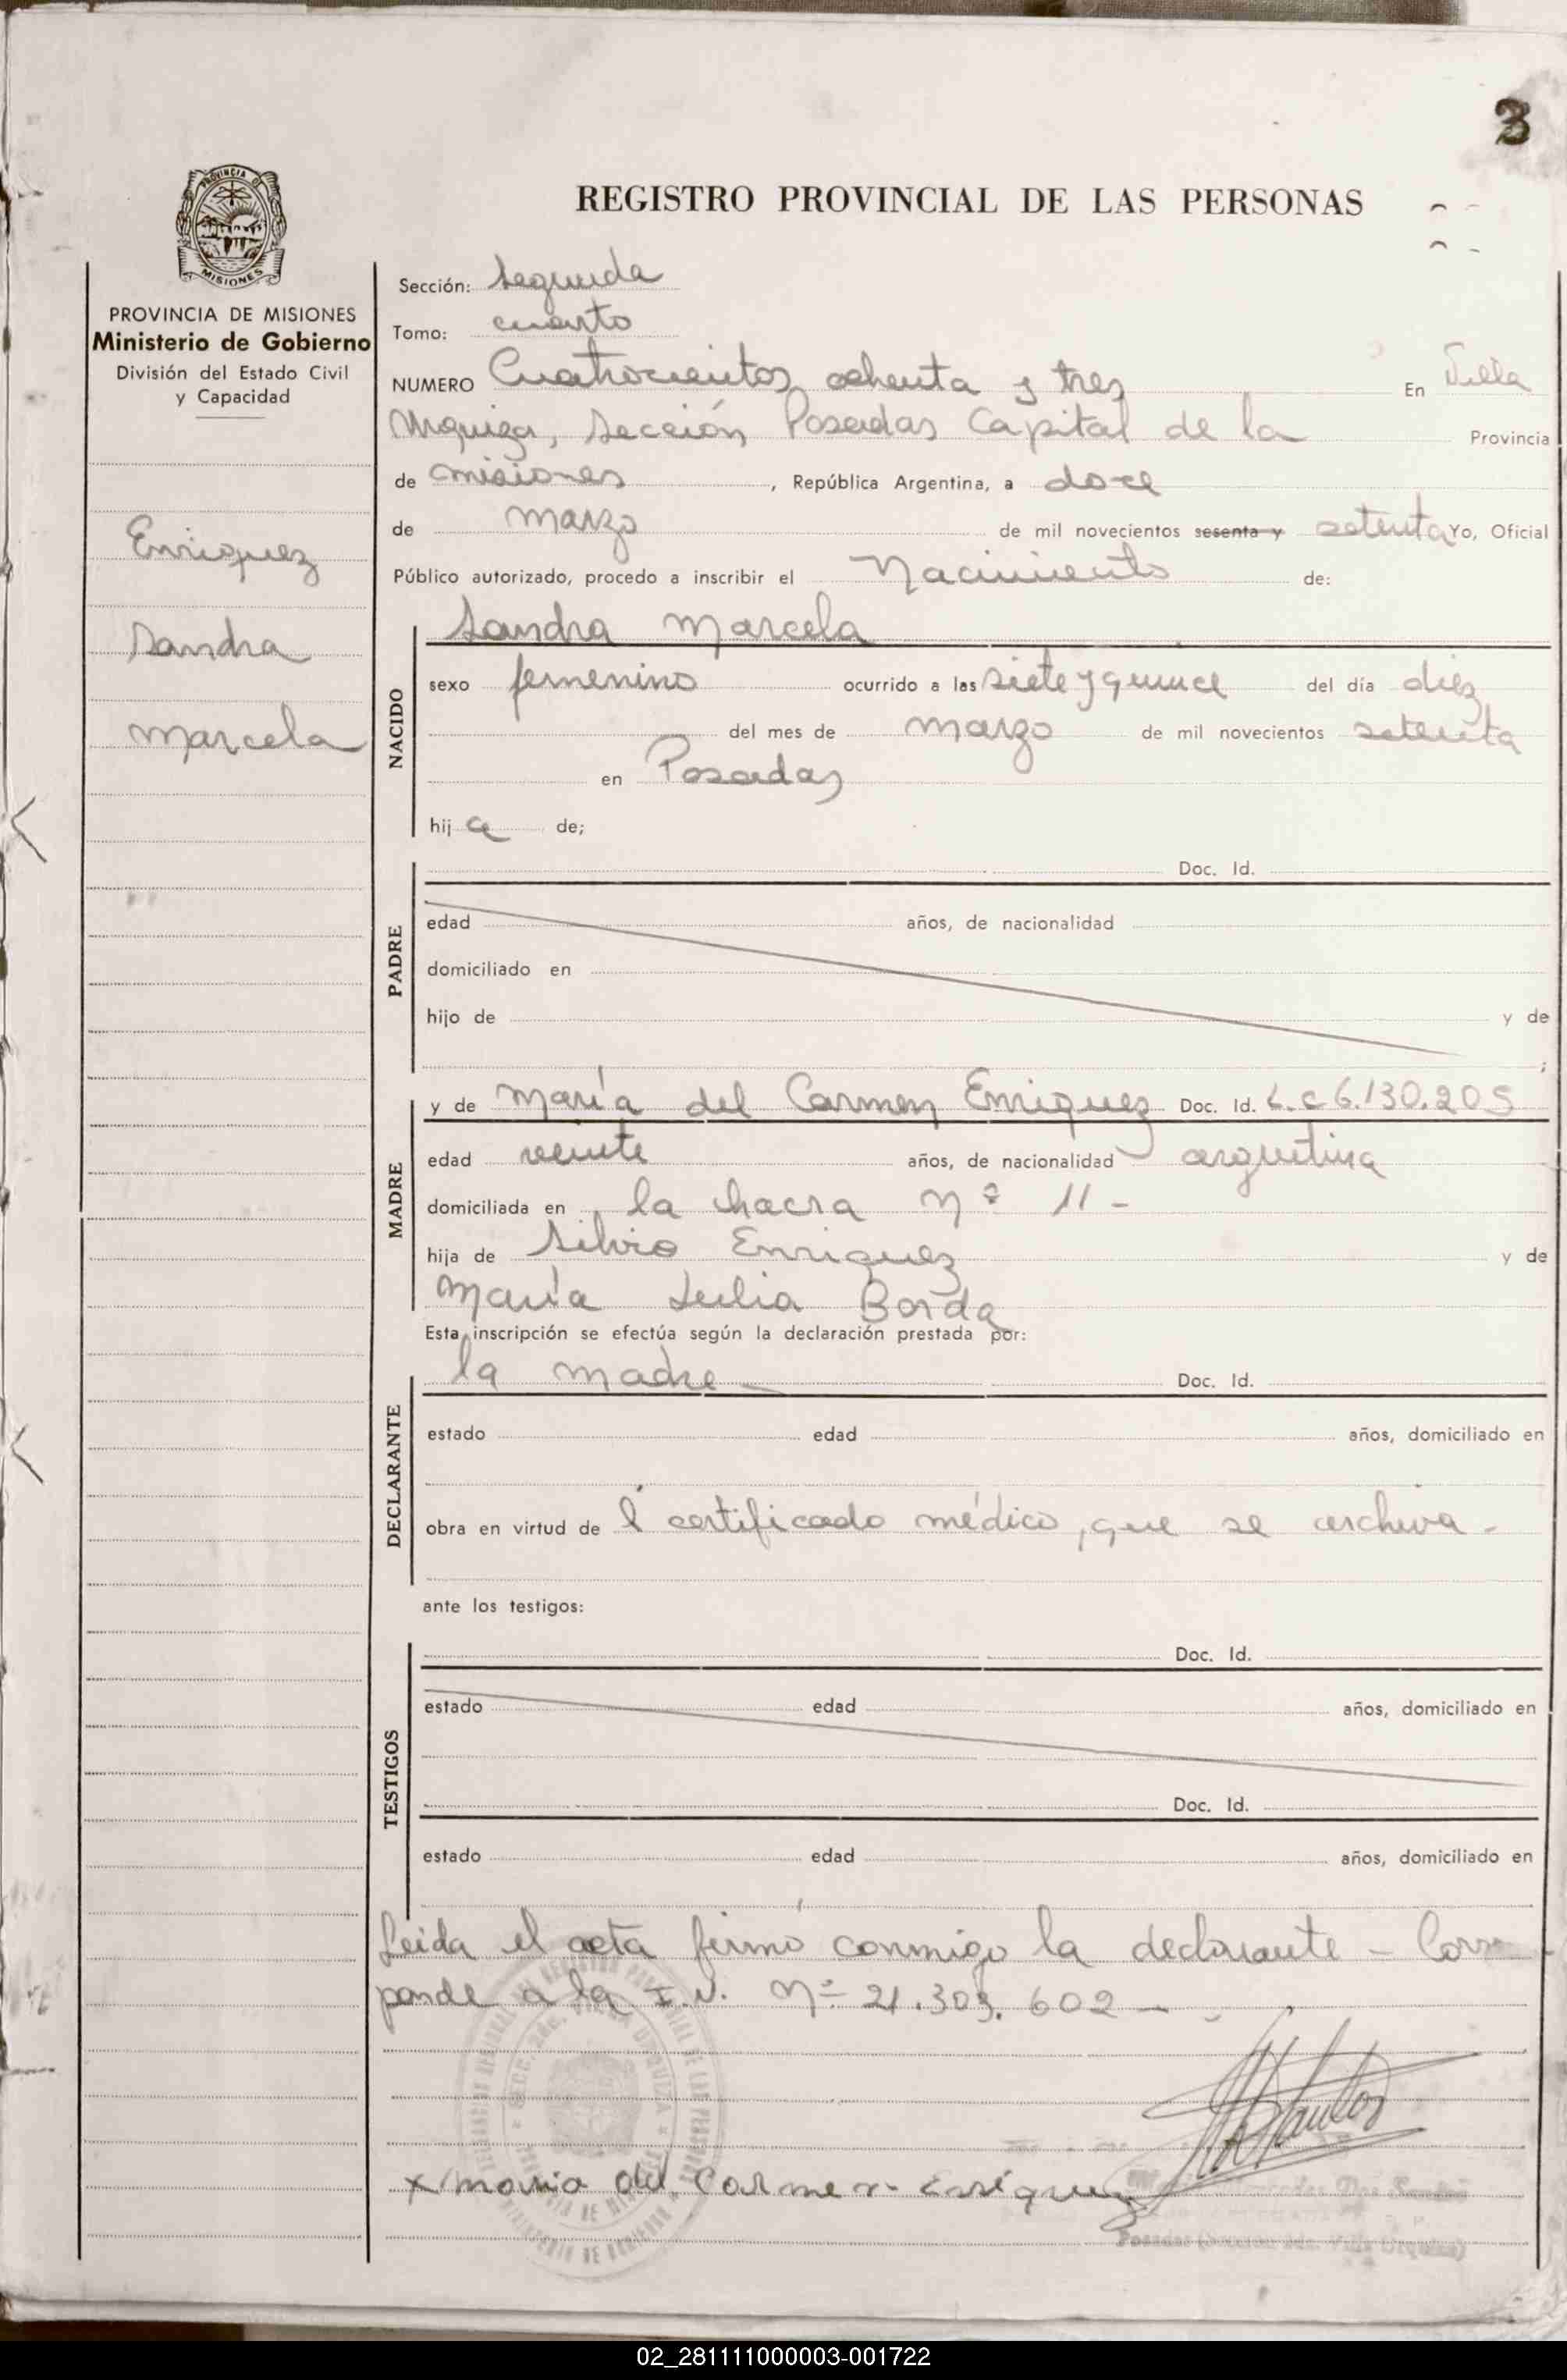 3
REGISTRO PROVINCIAL DE LAS PERSONAS
PROVINCIA DE MISIONES
Ministerio de Gobierno
División del Estado Civil
y Capacidad
Enriquez
Sandra
Marcela
Sección: Segunda
Tomo: cuarto
NUMERO Cuatrocientos ochenta y tres En Villa
Urquiza, Sección Posadas Capital de la Provincia
de Misiones, República Argentina, a doce
de marzo de mil novecientos sesenta y setenta Yo, Oficial
Público autorizado, procedo a inscribir el Nacimiento de:
NACIDO
Sandra Marcela
sexo femenino ocurrido a las siete y quince del día diez
del mes de marzo de mil novecientos setenta
en Posadas
hija de;
PADRE
Doc. Id.
edad años, de nacionalidad
domiciliado en
hijo de y de
;
MADRE
y de María del Carmen Enriquez Doc. Id. L.C 6.130.205
edad veinte años, de nacionalidad argentina
domiciliada en la chacra Nº 11 -
hija de Silvio Enriquez y de
María Julia Borda
Esta inscripción se efectúa según la declaración prestada por:
DECLARANTE
la madre Doc. Id.
estado edad años, domiciliado en
obra en virtud de l certificado médico, que se archiva -
ante los testigos:
TESTIGOS
Doc. Id.
estado edad años, domiciliado en
Doc. Id.
estado edad años, domiciliado en
Leida el acta firmó conmigo la declarante - Corres
ponde a la I.N. Nº 21.303.602 -
x maria del Carmen Enríquez
Posadas
02_281111000003-001722